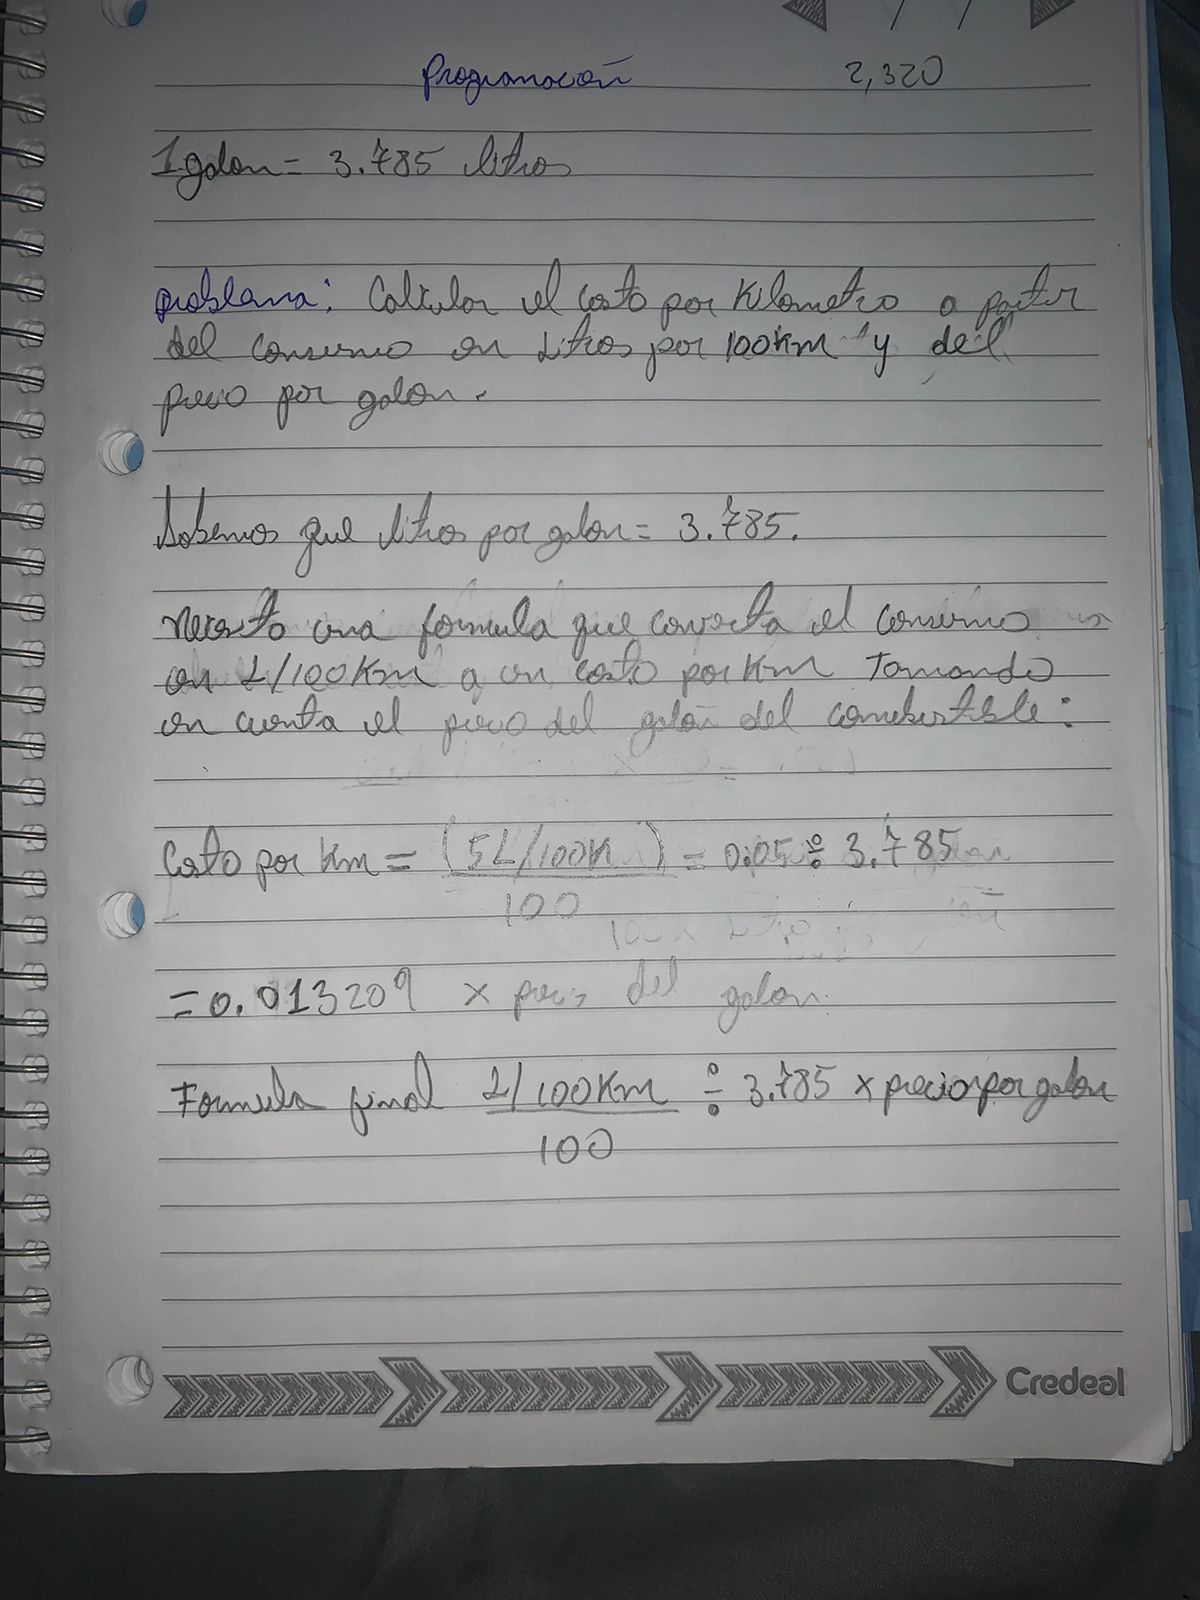 Programación 2,320
1 galon = 3.785 litros
problema: Calcular el costo por Kilometro a partir
del consumo en Litros por 100Km y del
precio por galon.
Sabemos que litros por galon = 3.785.
Necesito una formula que convierta el consumo
en L/100Km a un costo por Km Tomando
en cuenta el precio del galon del combustible:
Costo por Km = (5L/100K) = 0.05 ÷ 3.785
100
= 0.013209 x precio del galon.
Formula final L/100Km ÷ 3.785 x precio por galon
100
Credeal